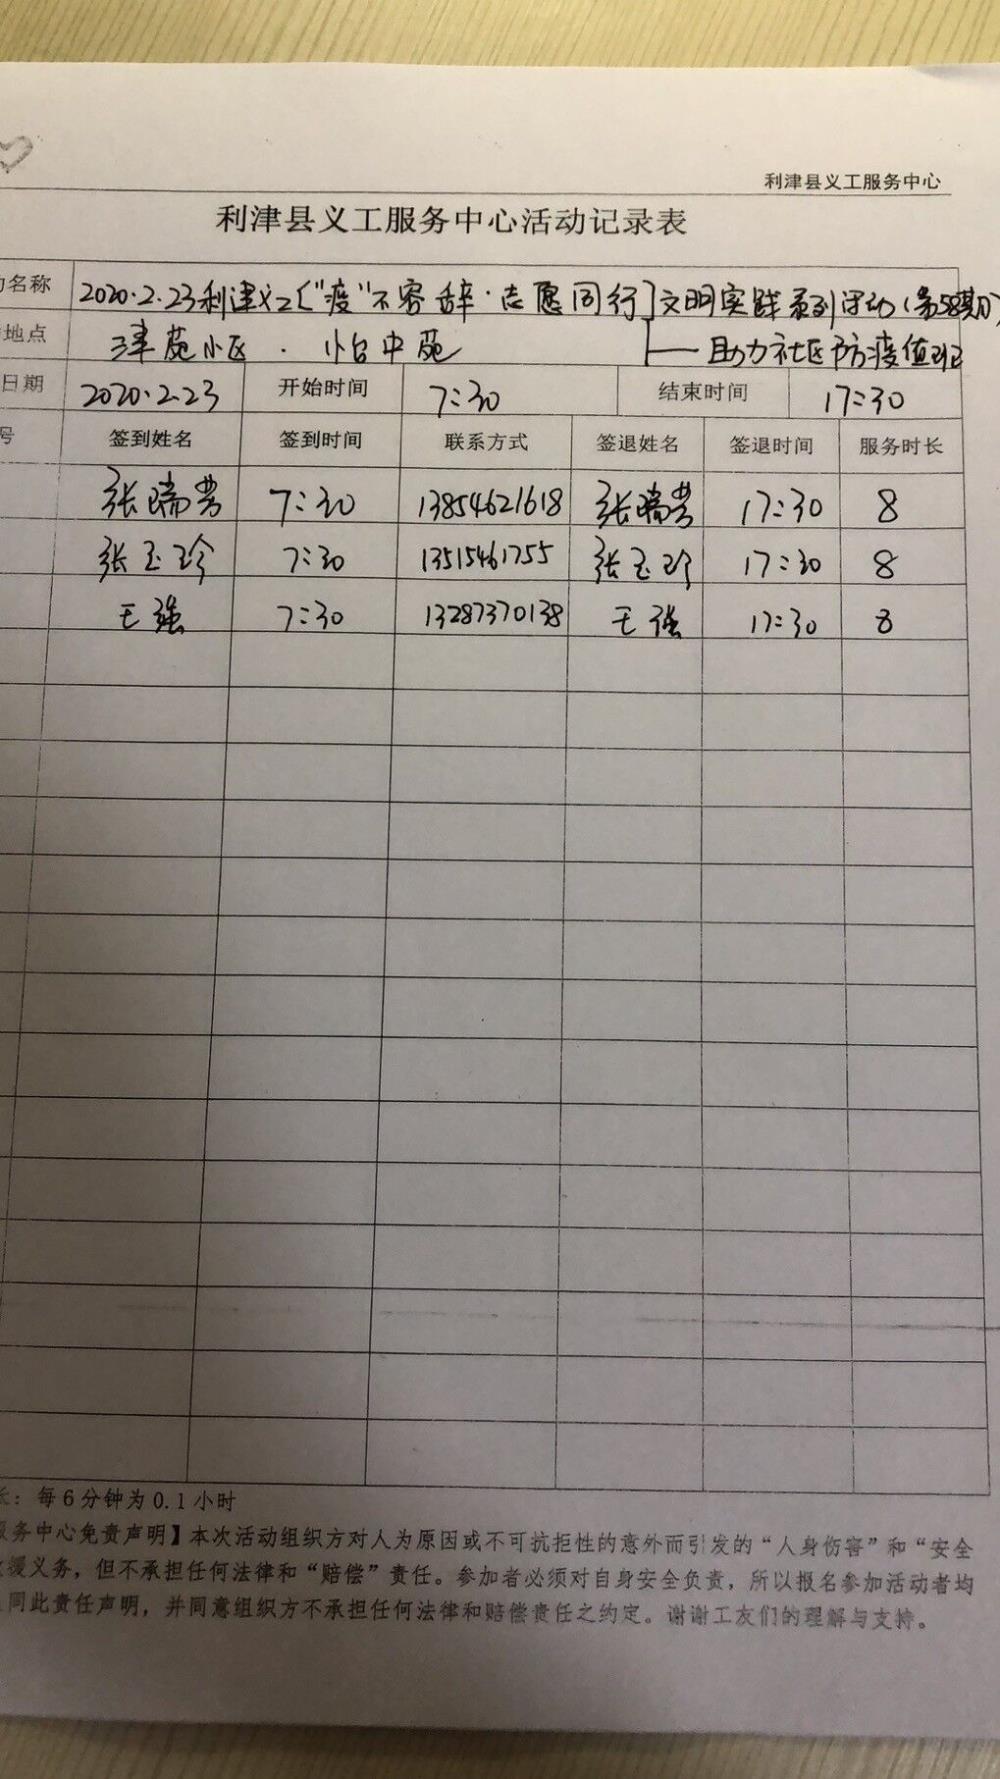 利津县义工服务中心
利津县义工服务中心活动记录表
名称 2020.2.23利津义工〔“疫”不容辞·志愿同行〕文明实践系列活动(第58期)
地点 津苑小区. 中苑 ——助力社区防疫值班
日期 2020.2.23 开始时间 7:30 结束时间 17:30
号 签到姓名 签到时间 联系方式 签退姓名 签退时间 服务时长
张瑞芳 7:30 13854621618 张瑞芳 17:30 8
张玉珍 7:30 13515461755 张玉珍 17:30 8
王强 7:30 13287370138 王强 17:30 8
长：每6分钟为0.1小时
服务中心免责声明】本次活动组织方对人为原因或不可抗拒性的意外而引发的“人身伤害”和“安全
援义务，但不承担任何法律和“赔偿”责任。参加者必须对自身安全负责，所以报名参加活动者均
同此责任声明，并同意组织方不承担任何法律和赔偿责任之约定。谢谢工友们的理解与支持。